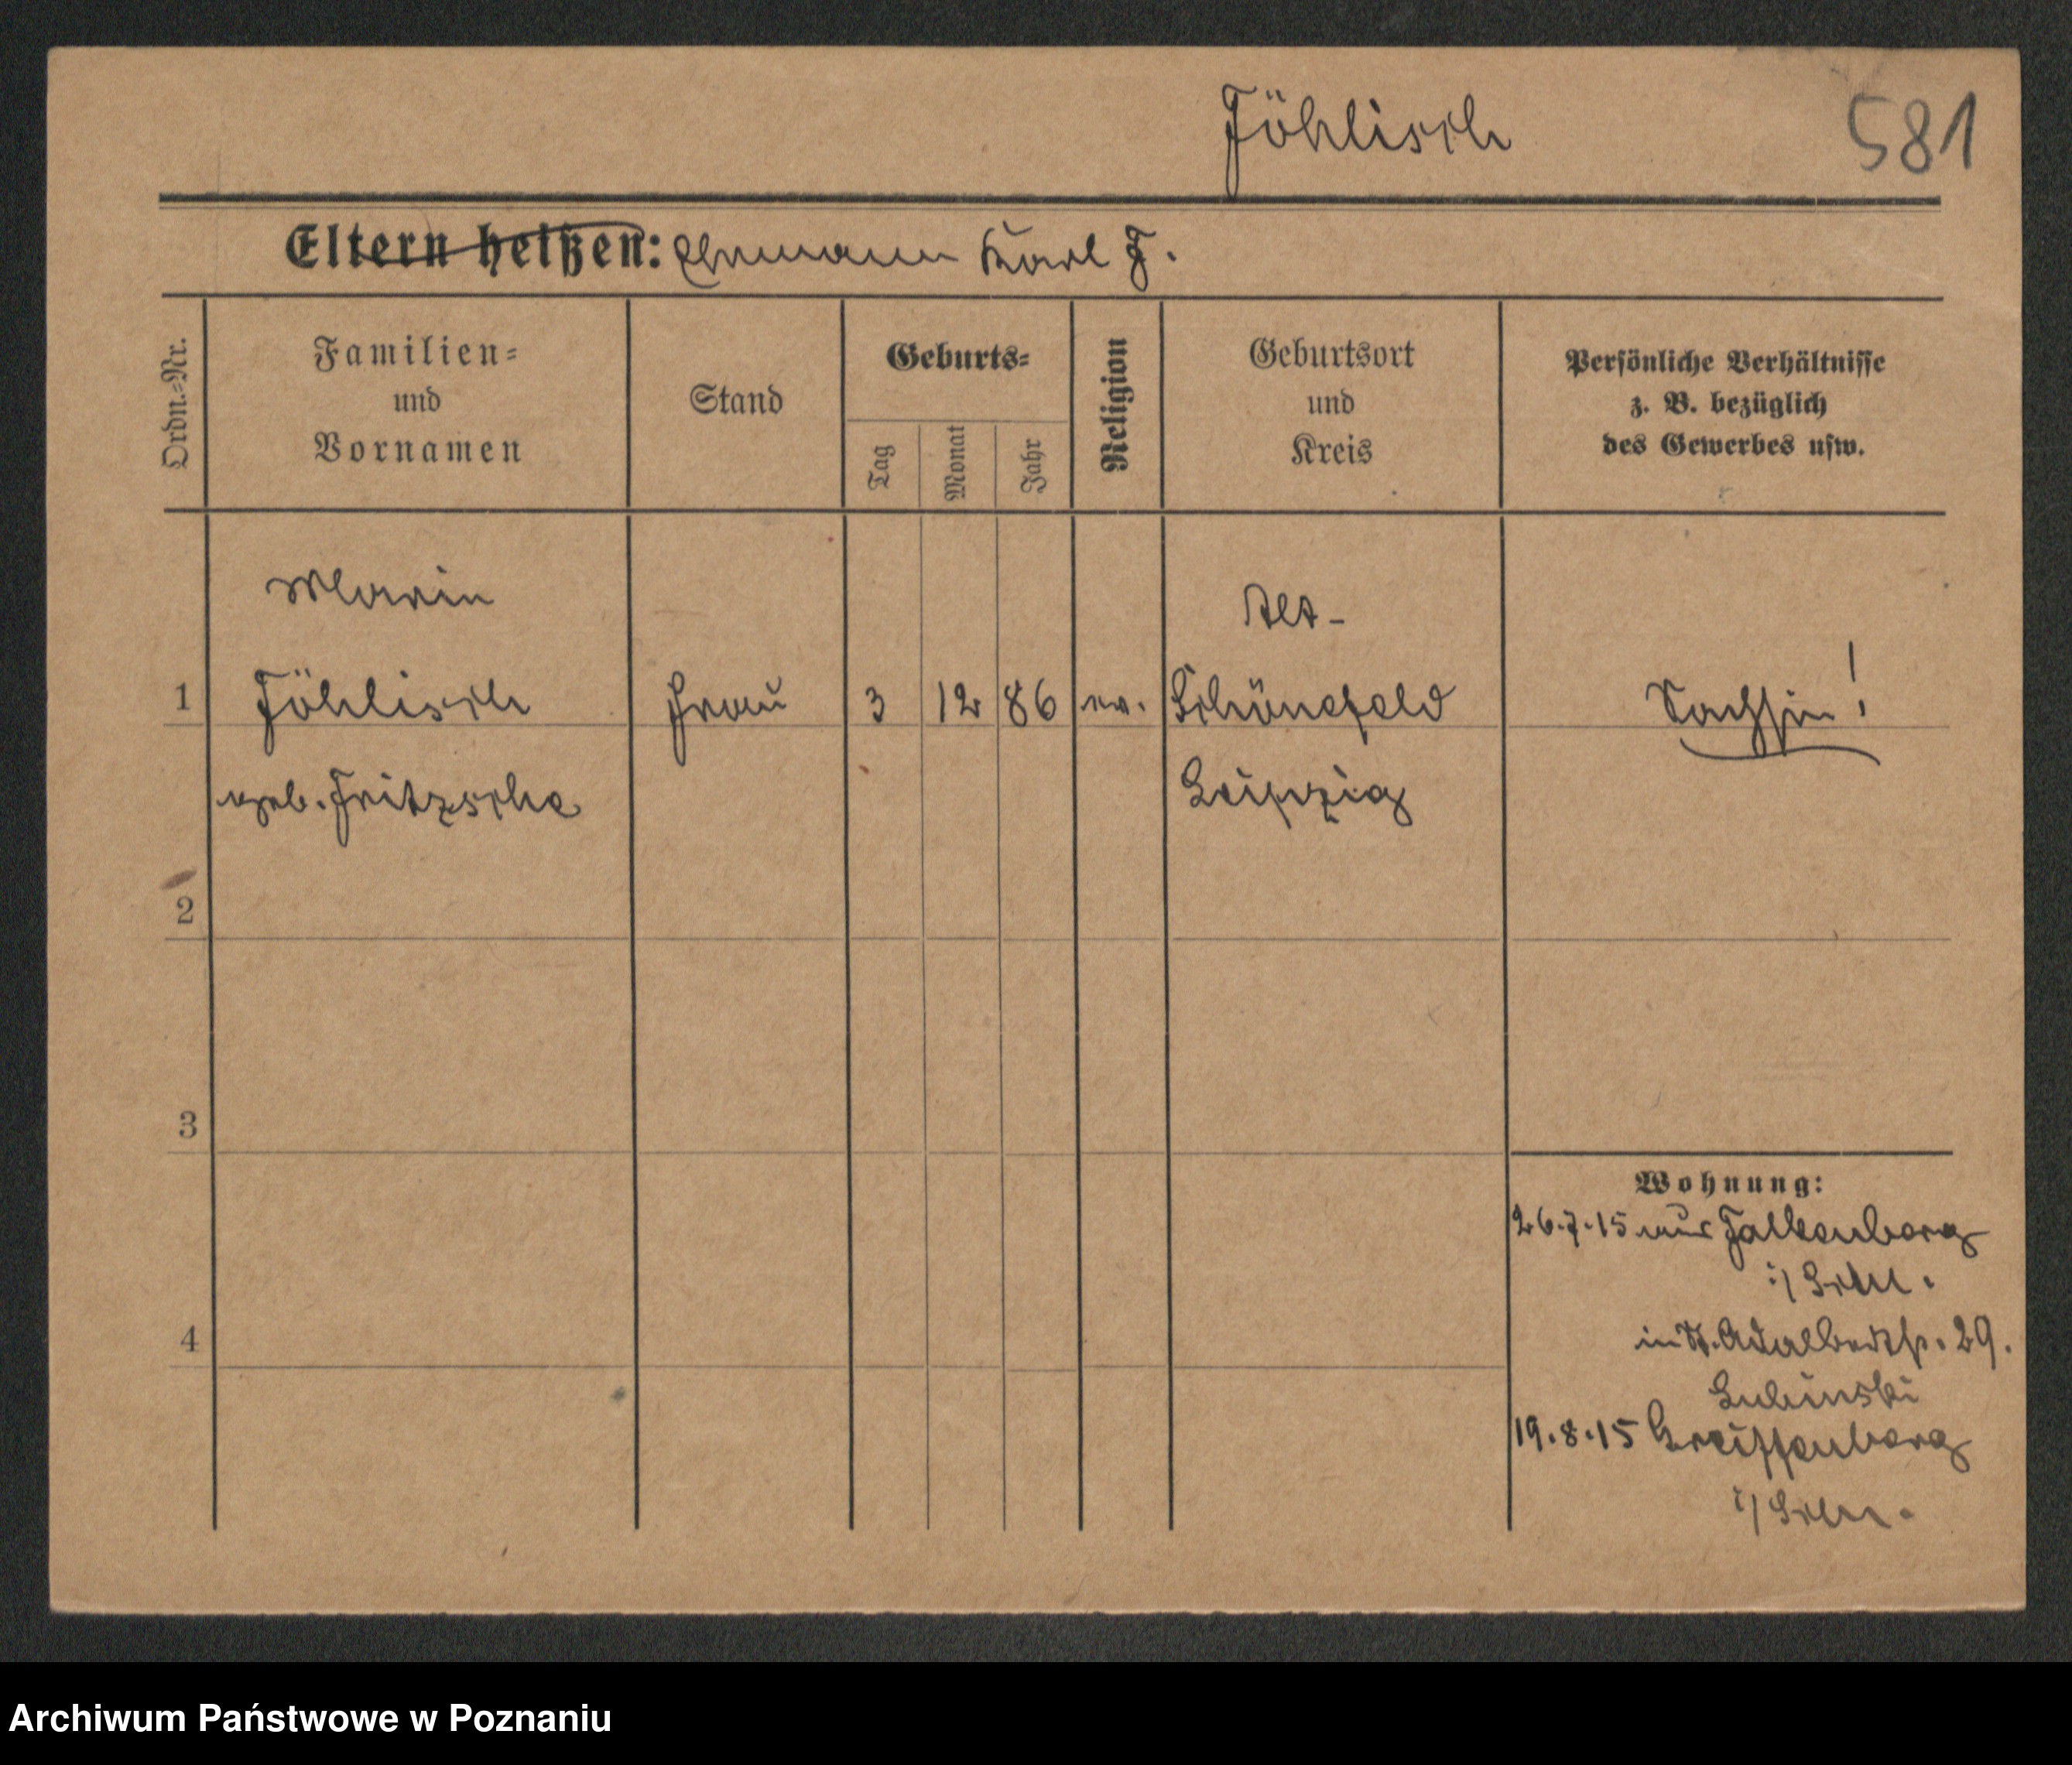 Föhlisch
581
Eltern heißen: Ehemann Karl F.
Ordn.-Nr.
Familien-
und
Vornamen
Stand
Geburts-
Tag
Monat
Jahr
Religion
Geburtsort
und
Kreis
Persönliche Verhältnisse
z. B. bezüglich
des Gewerbes usw.
Marie
Alt-
1 Föhlisch Frau 3 12 86 ev. Schönefeld Sachsin!
geb. Fritzsche Leipzig
2
3
Wohnung:
26.7.15 aus Falkenberg
i/Schl.
4
in St. Adalbertstr. 29.
Lubinski
19.8.15 Greiffenberg
i/Schl.
Archiwum Państwowe w Poznaniu